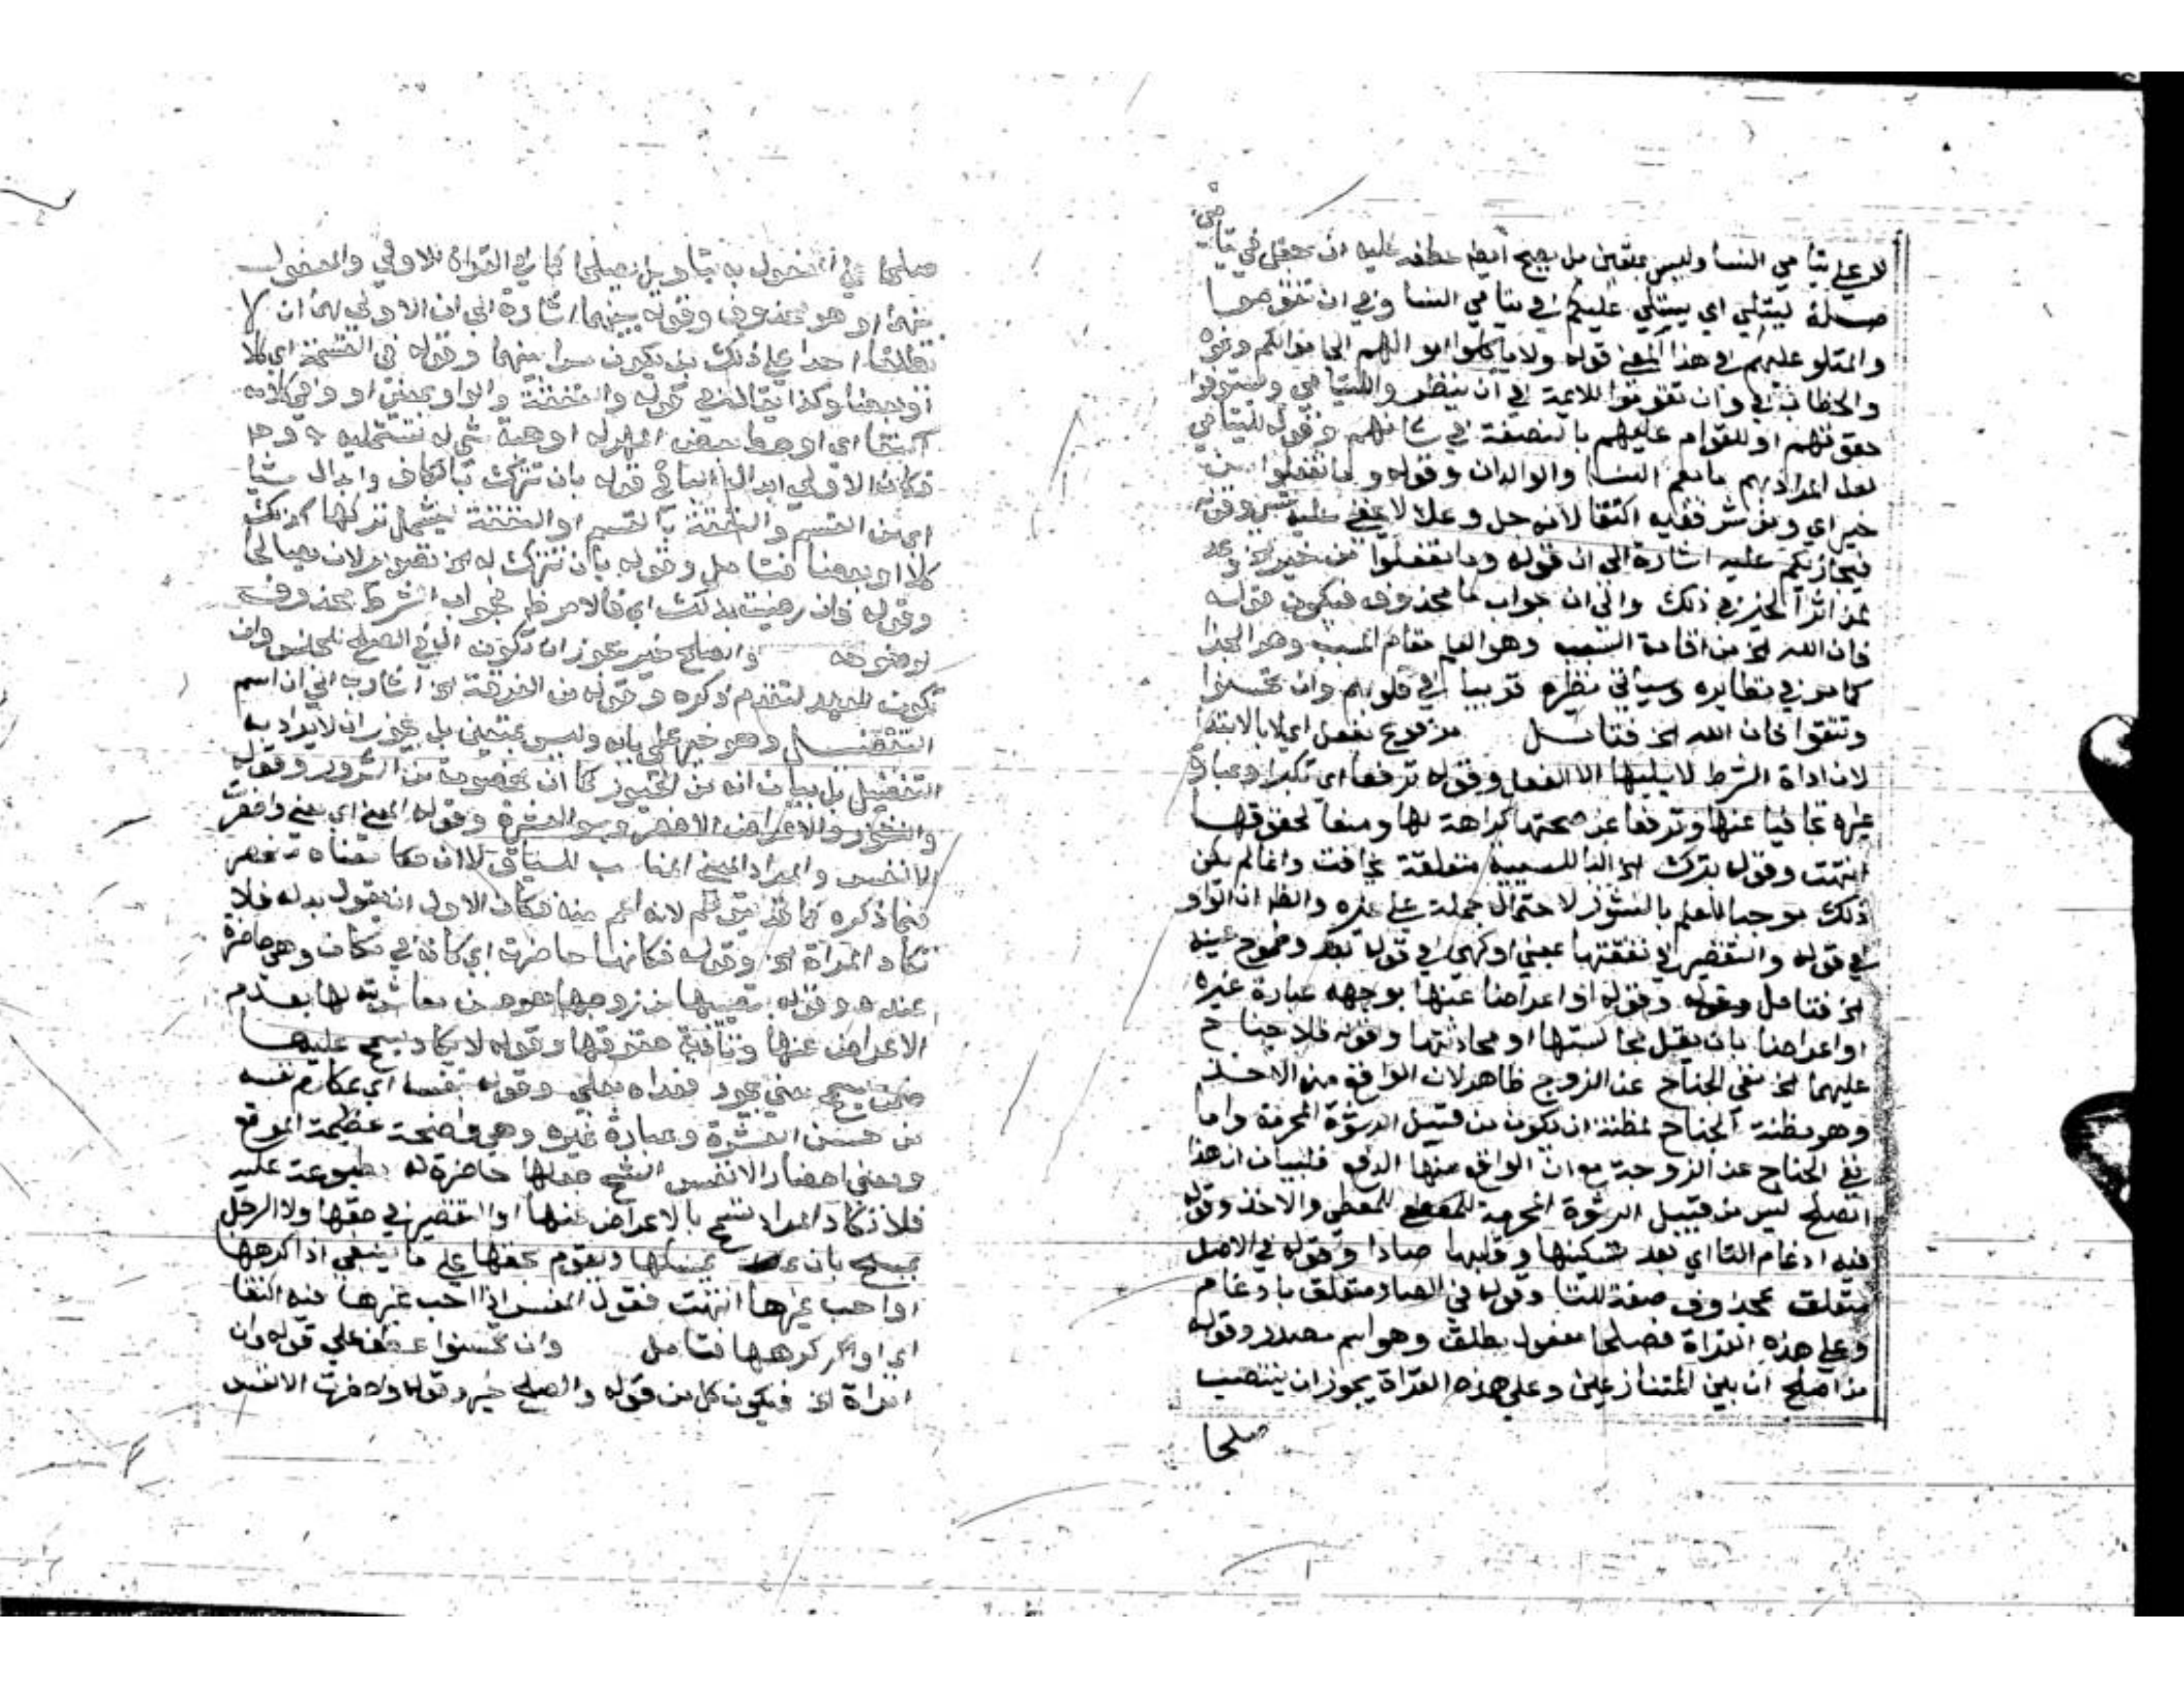 لا علي يتامي النسا وليس بمتعين بل يصح ايضا عطفه عليه ان جعل في يتامي
صلة ليتلي اي يتلي عليكم في يتامي النسا وفي ان تقوموا
والمتلو عليهم في هذا المعني قوله ولا تاكلوا اموالهم الي اموالكم ونحوه
والخطاب في وان تقوموا للايمة في ان ينظروا لليتامي ويستوفوا
حقوقهم او للقوام عليهم بالنصفة في شانهم وقوله لليتامي
لعل المراد بهم ما يعم النسا والوالدان وقوله وما تفعلوا من
خير اي ومن شر ففيه اكتفا لانه جل وعلا لا يخفي عليه شي وقوله
فيجازيكم عليه اشارة الي ان قوله وما تفعلوا من خير الخ وعد
لمن اثر الخير في ذلك والي ان جواب ما محذوف فيكون قوله
فان الله الخ من اقامة السبب وهو العلم مقام المسبب وهو الجزا
كما مر في نظايره وسياتي نظيره قريبا في قلوبهم وان تحسنوا
وتتقوا فان الله الخ فتامل مرفوع بفعل اي لا بالابتدا
لان اداة الشرط لا يليها الا الفعل وقوله ترفعا اي تكبرا وعبارة
غيره تجافيا عنها وترفعا عن صحبتها كراهة لها ومنعا لحقوقها
انتهت وقوله بترك الخ البا للسببية متعلقة بخافت وانما لم يكن
ذلك موجبا للعلم بالنشوز لاحتمال حمله علي غيره والظا ان الواو
في قوله والتقصير في نفقتها بمعني او كهي في قوله بعد وطموح عينه
الخ فتامل وقوله او اعراضا عنها بوجهه عبارة غيره
او اعراضا بان يقل مجالستها او محادثتها وقوله فلا جناح
عليهما الخ نفي الجناح عن الزوج ظاهر لان الواقع منه الاخذ
وهو مظنة الجناح لمظنة ان يكون من قبيل الرشوة المحرمة واما
نفي الجناح عن الزوجة مع ان الواقع منها الدفع فلبيان ان هذا
الصلح ليس من قبيل الرشوة المحرمة للمعطي والاخذ وقوله
فيه ادغام التا اي بعد تسكينها وقلبها صادا وقوله في الاصل
متعلق بمحذوف صفة للتا وقوله في الصاد متعلق بادغام
وعلي هذه القراة فصلحا مفعول مطلق وهو اسم مصدر وقوله
من اصلح اي بين المتنازعين وعلي هذه القراة يجوز ان ينتصب
صلحا
صلحا علي المفعول به بتاويل يصلحا كما في القراة الاولي والمفعول
بينهما او هو محذوف وقوله بينهما اشارة الي ان الاولي لهما ان لا
يطلعا احدا علي ذلك بل يكون سرا بينهما وقوله في القسمة اي كلا
او بعضا وكذا يقال في قوله والنفقة والواو بمعني او وفي كلامه
اكتفا اي او حط بعض المهر له او هبة شي له تستميله به وهو
فكان الاولي ابدال البا في قوله بان تترك بالكاف وابدال شيا
اي من القسم والنفقة بالقسم او النفقة ليشمل تركها كذلك
كلا او بعضا فتامل وقوله بان تترك له الخ تصوير لان يصالحا
وقوله فان رضيت بذلك اي فالامر ظ فجواب الشرط محذوف
لوضوحه والصلح خير يجوز ان تكون ال في الصلح للجنس وان
تكون للعهد لتقدم ذكره وقوله من الفرقة الخ اشار به الي ان اسم
التفضيل وهو خير علي بابه وليس بمتعين بل يجوز ان لا يراد به
التفضيل بل بيان انه من الخيور كما ان الخصومة من الشرور وقوله
والنشوز والاعراض الاخصر وسو العشرة وقوله المعني اي معني واحضرت
الانفس والمراد المعني المناسب للسياق لا ان هذا معناه منحصر
فيما ذكره كما قد يتوهم لانه اعم منه فكان الاولي ان يقول بدله فلا
تكاد المراة الخ وقوله فكانها حاضرته اي كانه في مكان وهي حاضرة
عنده وقوله بنصيبها من زوجها هو من معاشرته لها بعدم
الاعراض عنها وتادية حقوقها وقوله لا يكاد يسمح عليها
ضمن يسمح معني يجود فعداه بعلي وقوله بنفسه اي بمكارم نفسه
من حسن العشرة وعبارة غيره وهي واضحة عظيمة الموقع
ومعني احضار الانفس الشح جعلها حاضرة له مطبوعة عليه
فلا تكاد المراة تسمح بالاعراض عنها والتقصير في حقها ولا الرجل
يسمح بان يمسكها ويقوم بحقها علي ما ينبغي اذا كرهها
او احب غيرها انتهت فقول المفسر اذا احب غيرها فيه اكتفا
اي او كرهها فتامل وان تحسنوا عطف علي قوله وان
امراة الخ فيكون كل من قوله والصلح خير وقوله واحضرت الانفس